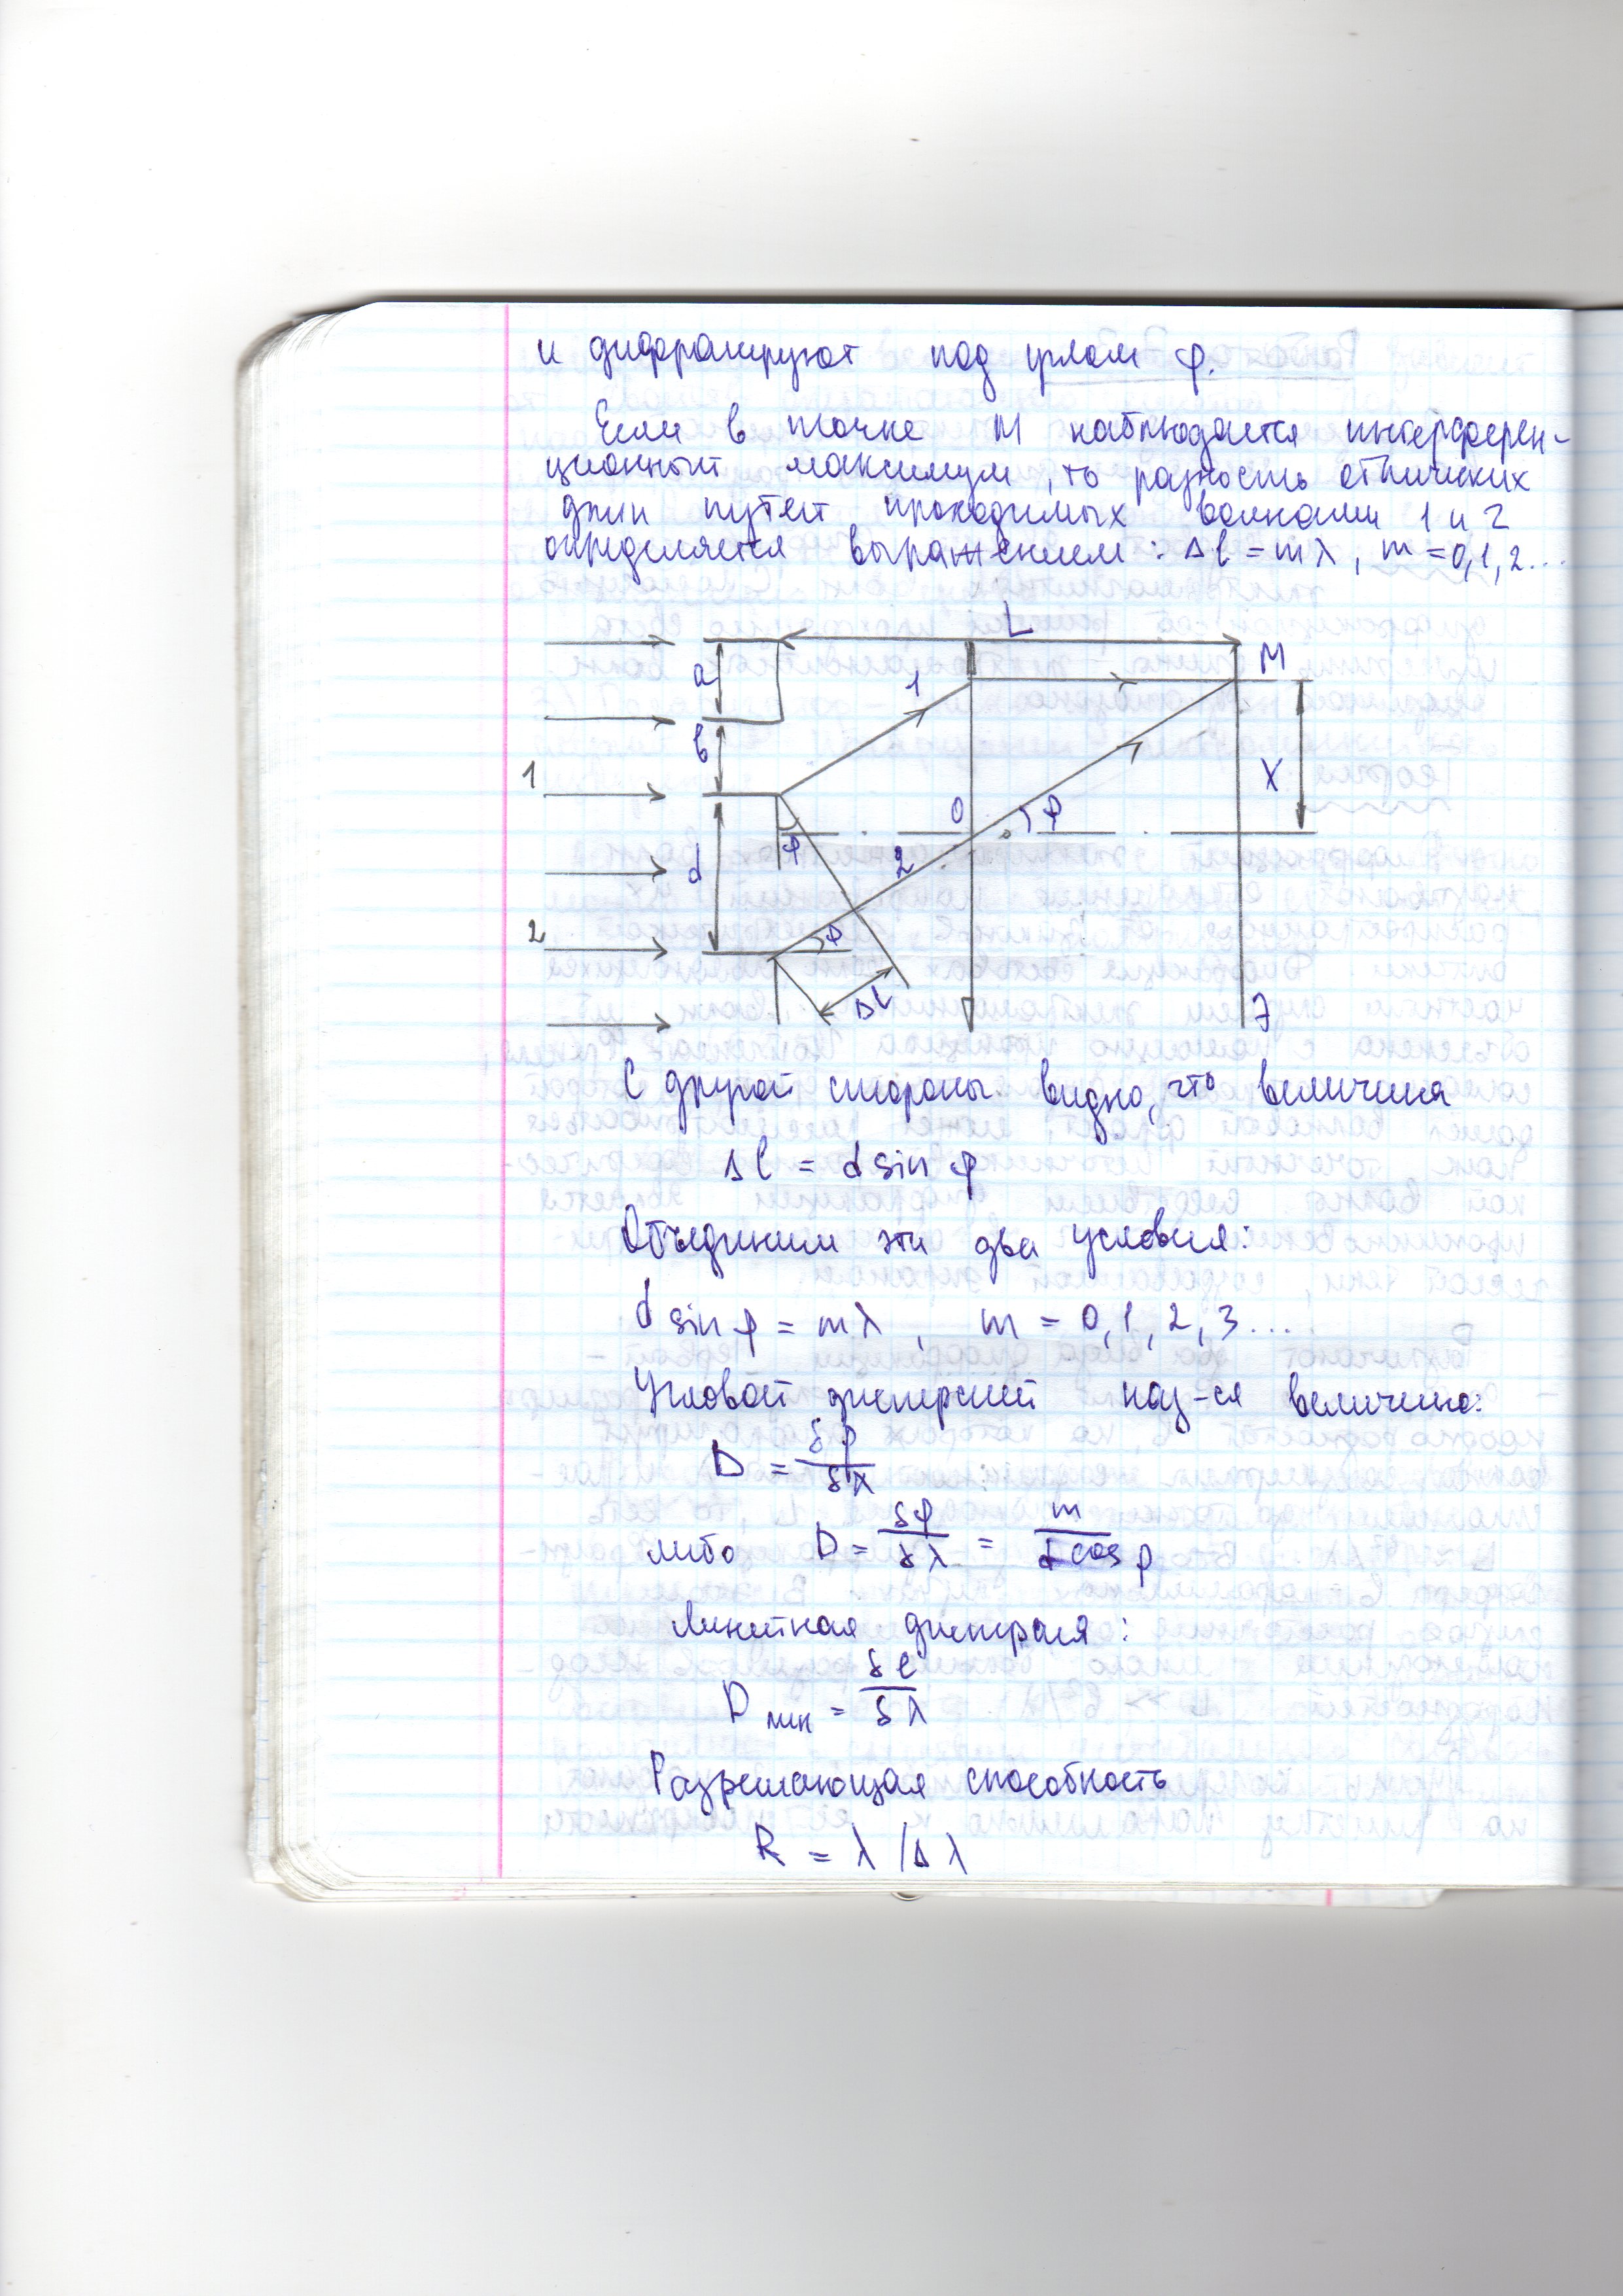 и дифрагируют под углом φ.
Если в точке М наблюдается интерферен-
ционный максимум, то разность оптических
длин путей проходимых волнами 1 и 2
определяется выражением: Δl = mλ, m = 0,1,2...
L
M
a
1
b
1
X
0
φ
φ
2
d
2
φ
Δl
Э
С другой стороны видно, что величина
Δl = d sin φ
Объединим эти два условия:
d sin φ = mλ, m = 0,1,2,3...
Угловой дисперсией наз-ся величина:
D = δφ/δλ
либо D = δφ/δλ = m/d cos φ
Линейная дисперсия:
D лин = δl/δλ
Разрешающая способность
R = λ/Δλ